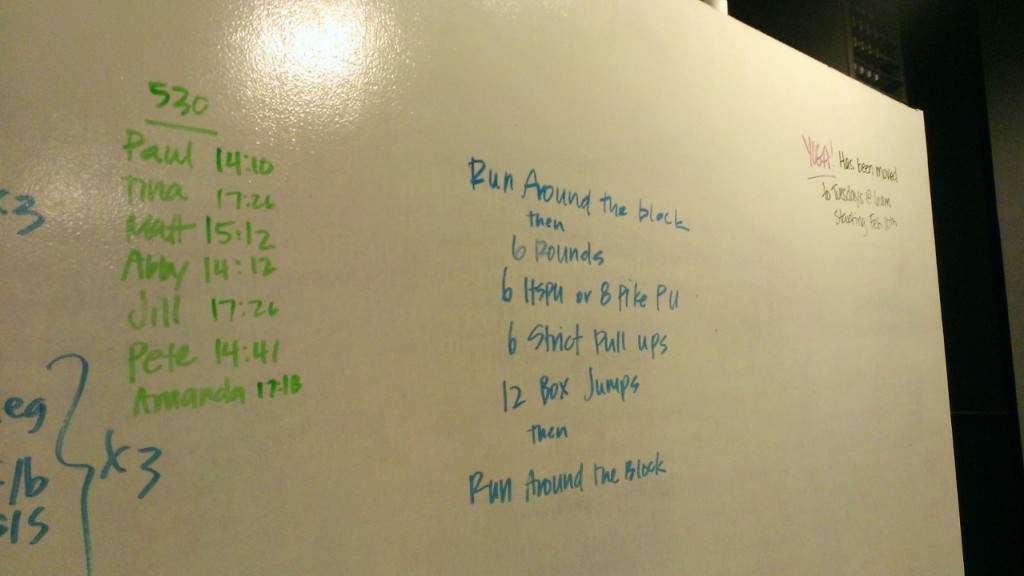 530
Paul 14:10
Tina 17:26
Matt 15:12
Abby 14:12
Jill 17:26
Pete 14:41
Amanda 17:18
x3
eg
/b
s/s
x3
Run Around the block
then
6 Rounds
6 HSPU or 8 Pike PU
6 Strict Pull ups
12 Box Jumps
then
Run Around the Block
YOGA! Has been moved
to Tuesdays @ 6am
Starting Feb